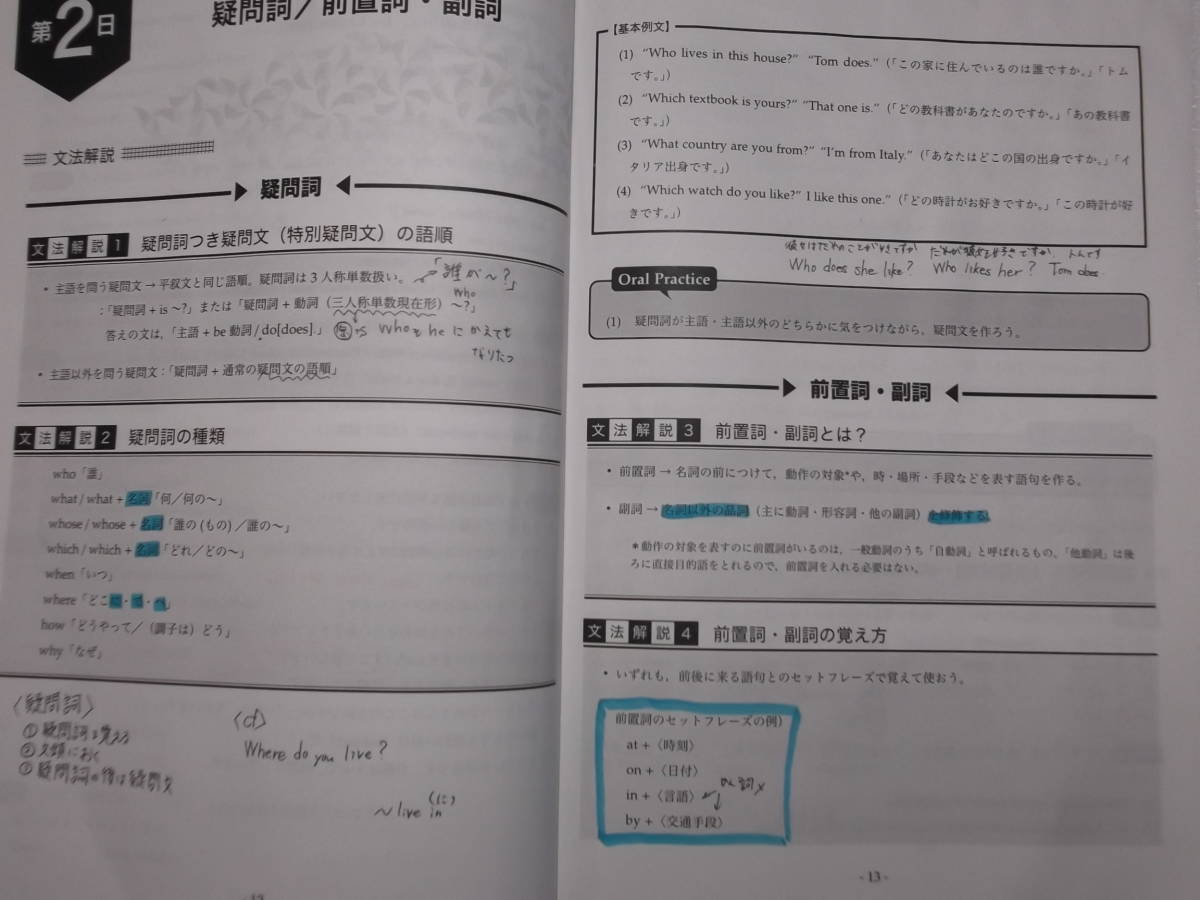 第2日
疑問詞/前置詞・副詞
文法解説
疑問詞
文法解説1 疑問詞つき疑問文（特別疑問文）の語順
• 主語を問う疑問文 → 平叙文と同じ語順。疑問詞は3人称単数扱い。
「誰が～?」
who
：「疑問詞 + is ～?」または「疑問詞 + 動詞（三人称単数現在形）～?」
答えの文は，「主語 + be 動詞/do[does].」
から whoを he に かえても
なりたつ
• 主語以外を問う疑問文：「疑問詞 + 通常の疑問文の語順」
文法解説2 疑問詞の種類
who「誰」
what / what + 名詞「何／何の～」
whose / whose + 名詞「誰の (もの) ／誰の～」
which / which + 名詞「どれ／どの～」
when「いつ」
where「どこに・で・へ」
how「どうやって／（調子は）どう」
why「なぜ」
〈疑問詞〉
①疑問詞を覚える
②文頭におく
③疑問詞の後は疑問文
〈d〉
Where do you live?
～live in
(に)
【基本例文】
(1) “Who lives in this house?” “Tom does.”（「この家に住んでいるのは誰ですか。」「トム
です。」）
(2) “Which textbook is yours?” “That one is.”（「どの教科書があなたのですか。」「あの教科書
です。」）
(3) “What country are you from?” “I'm from Italy.”（「あなたはどこの国の出身ですか。」「イ
タリア出身です。」）
(4) “Which watch do you like?” I like this one.”（「どの時計がお好きですか。」「この時計が好
きです。」）
彼女はだれのことが好きですか だれが彼女を好きですか. トムです
Who does she like? Who likes her? Tom does.
Oral Practice
(1) 疑問詞が主語・主語以外のどちらかに気をつけながら，疑問文を作ろう。
前置詞・副詞
文法解説3 前置詞・副詞とは？
• 前置詞 → 名詞の前につけて，動作の対象*や，時・場所・手段などを表す語句を作る。
• 副詞 → 名詞以外の品詞（主に動詞・形容詞・他の副詞）を修飾する。
＊動作の対象を表すのに前置詞がいるのは，一般動詞のうち「自動詞」と呼ばれるもの。「他動詞」は後
ろに直接目的語をとれるので，前置詞を入れる必要はない。
文法解説4 前置詞・副詞の覚え方
• いずれも，前後に来る語句とのセットフレーズで覚えて使おう。
前置詞のセットフレーズの例）
at +〈時刻〉
on +〈日付〉
in +〈言語〉
by +〈交通手段〉
- 13 -